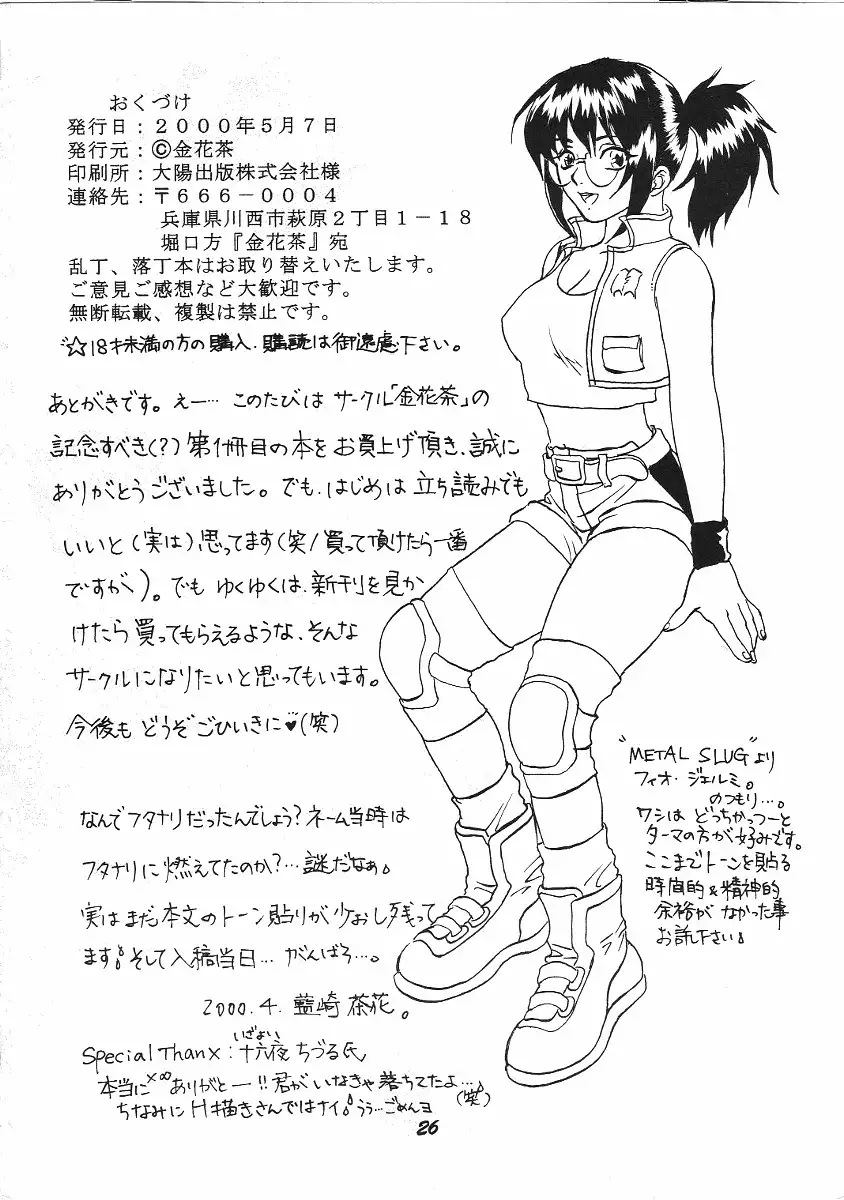 おくづけ
発行日：２０００年５月７日
発行元：©金花茶
印刷所：大陽出版株式会社様
連絡先：〒６６６－０００４
兵庫県川西市萩原２丁目１－１８
堀口方『金花茶』宛
乱丁、落丁本はお取り替えいたします。
ご意見ご感想など大歓迎です。
無断転載、複製は禁止です。
☆18才未満の方の購入、購読は御遠慮下さい。
あとがきです。えー… このたびは サークル「金花茶」の
記念すべき(?) 第1冊目の本を お買上げ頂き、誠に
ありがとうございました。でも、はじめは 立ち読みでも
いいと(実は)思ってます(笑/買って頂けたら一番
ですが)。でも ゆくゆくは、新刊を見か
けたら 買ってもらえるような、そんな
サークルになりたいと思ってもいます。
今後も どうぞごひいきに♥(笑)
なんでフタナリだったんでしょう？ネーム当時は
フタナリに燃えてたのか？…謎だなぁ。
実は まだ本文のトーン貼りが少おし残って
ます。そして入稿当日… がんばろ…。
2000.4. 藍崎 茶花。
Special Thanx：十六夜 ちづる氏
いざよい
本当に×∞ありがとー!!君がいなきゃ落ちてたよ…。
(笑)
ちなみに H描きさんではナイ。うぅ…ごめんヨ
"METAL SLUG"より
フィオ・ジェルミ。
のつもり…。
ワシは どっちかっつーと
ターマの方が好みです。
ここまでトーンを貼る
時間的&精神的
余裕が なかった事
お許し下さい。
26